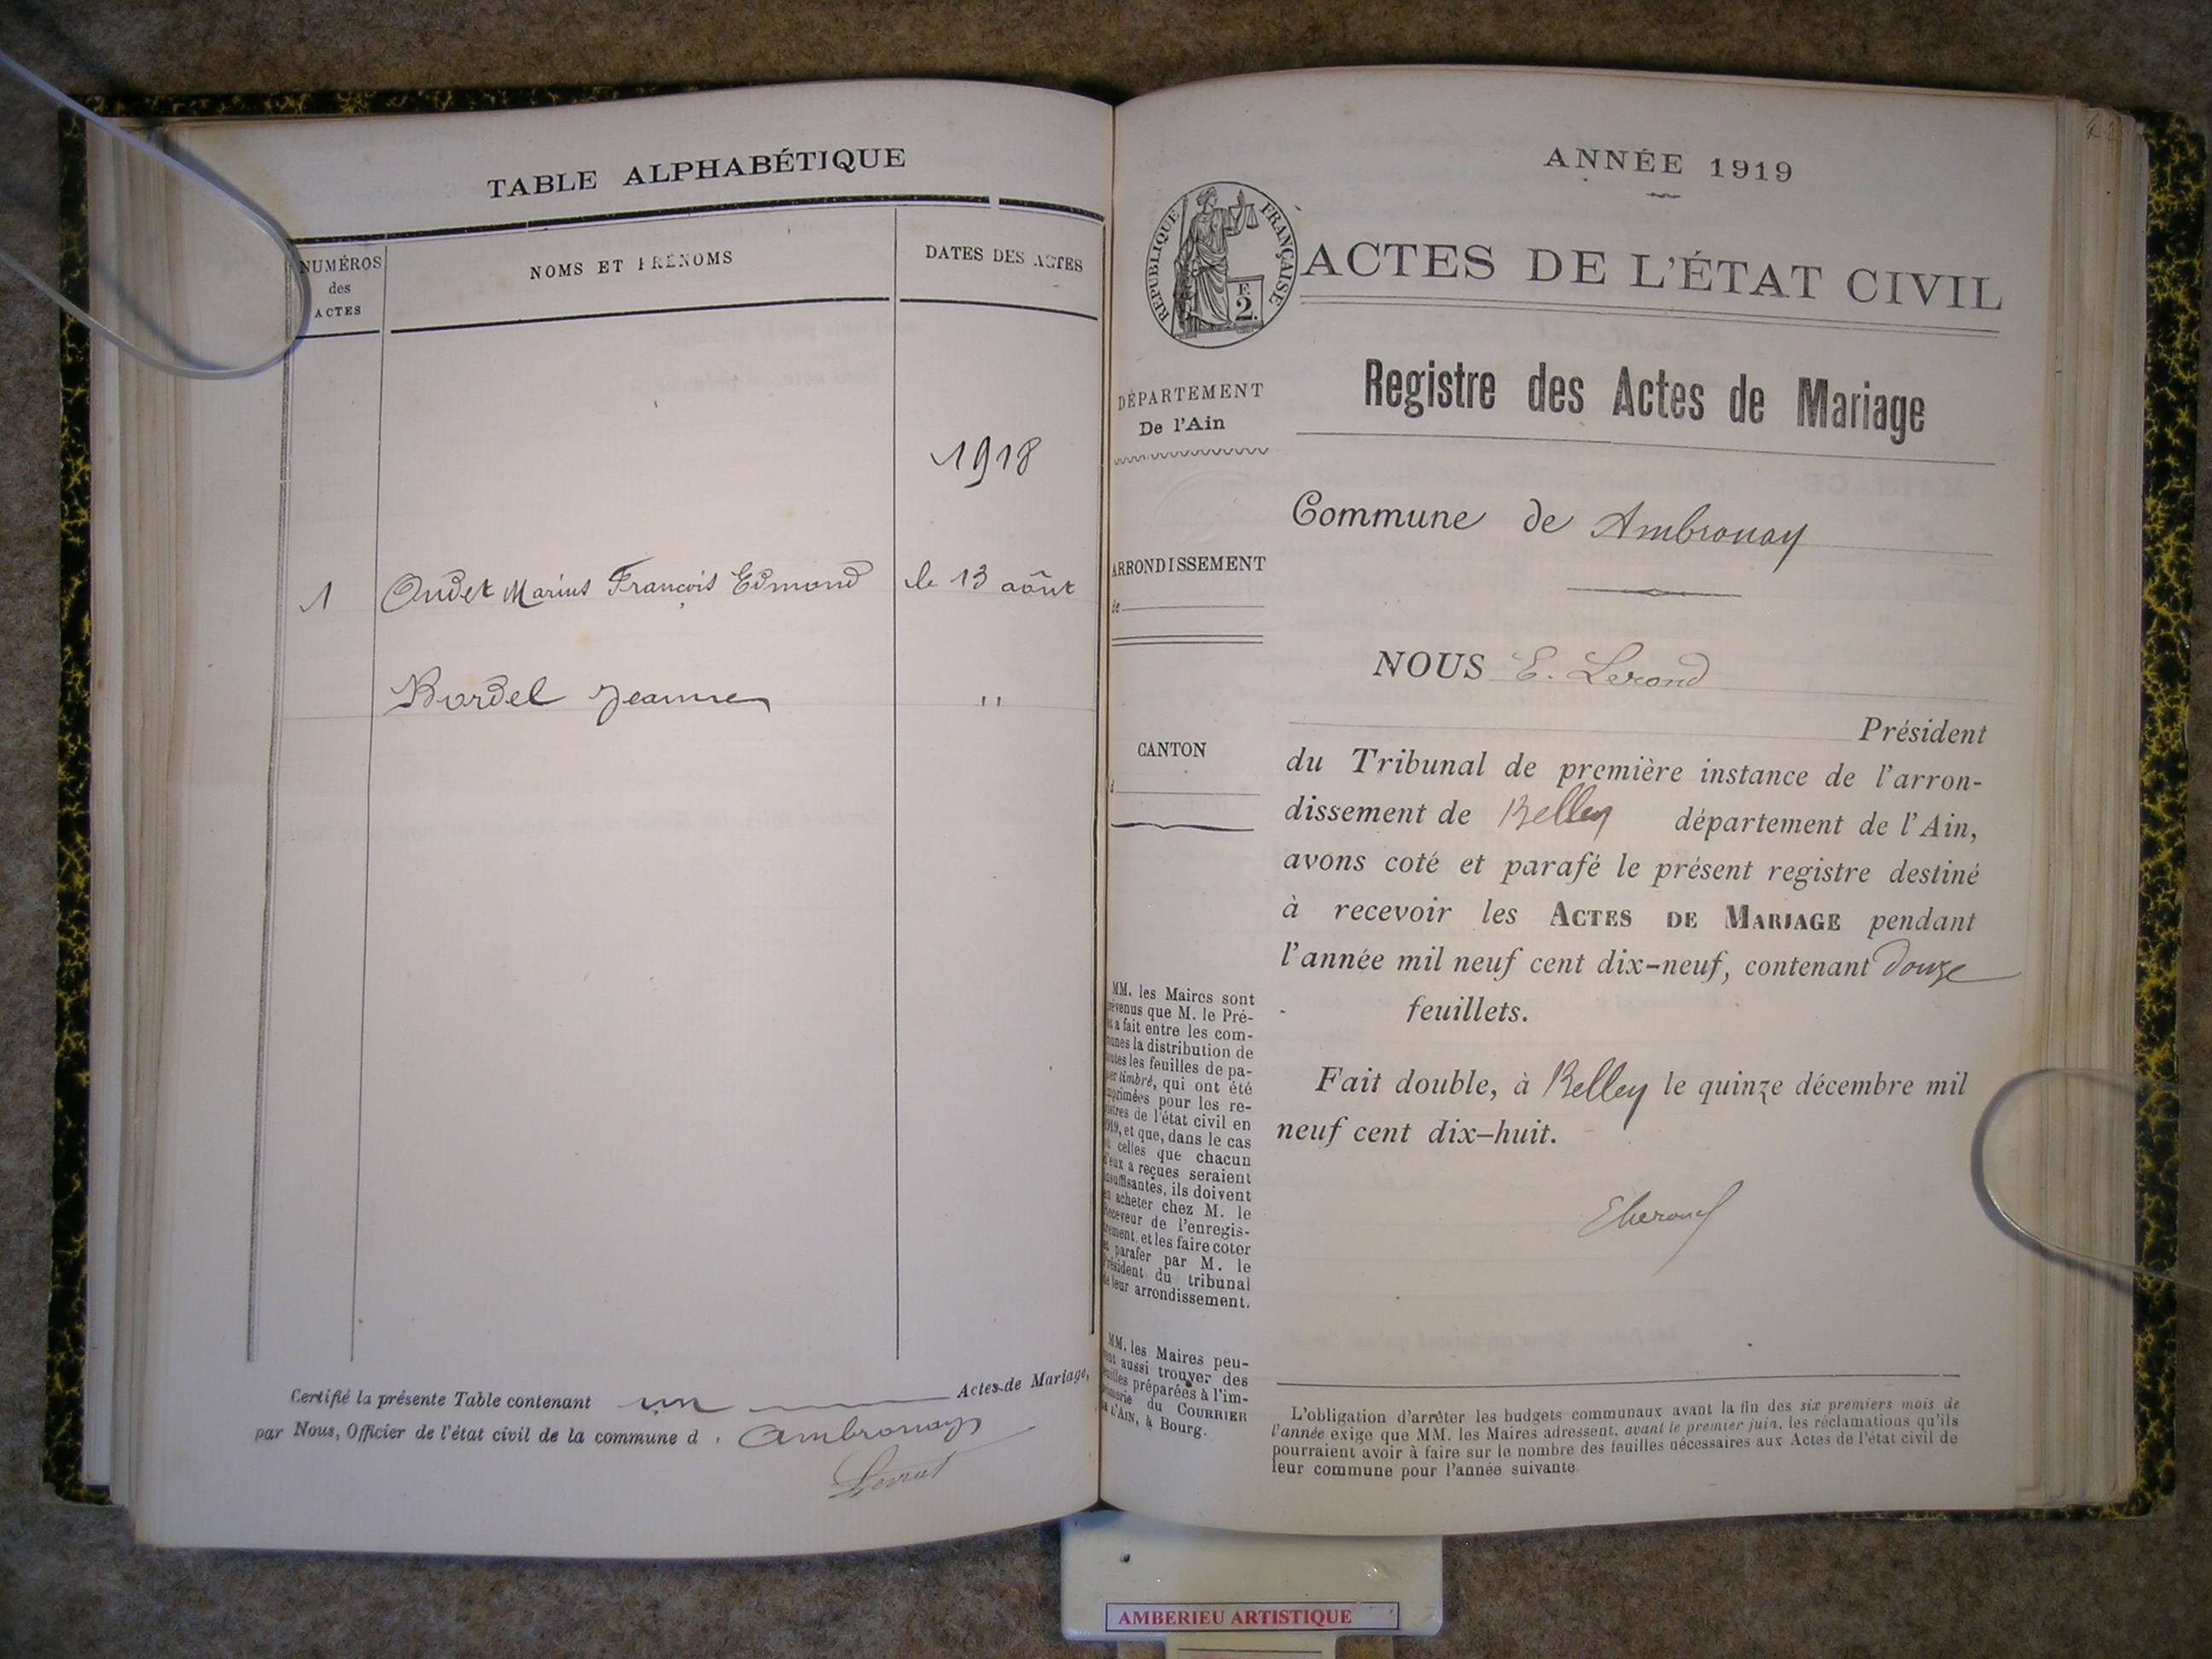 TABLE ALPHABÉTIQUE
NUMÉROS
des
ACTES
NOMS ET PRÉNOMS
DATES DES ACTES
1918
1 Oudet Marius François Edmond le 13 août
Bordel Jeanne "
Certifié la présente Table contenant un Actes de Mariage,
par Nous, Officier de l'état civil de la commune d Ambronay
ANNÉE 1919
RÉPUBLIQUE FRANÇAISE
F.
2.
ACTES DE L'ÉTAT CIVIL
Registre des Actes de Mariage
DÉPARTEMENT
De l'Ain
Commune de Ambronay
ARRONDISSEMENT
de
NOUS E. Lerond
Président
CANTON
du Tribunal de première instance de l'arron-
dissement de Belley département de l'Ain,
avons coté et parafé le présent registre destiné
à recevoir les ACTES DE MARIAGE pendant
l'année mil neuf cent dix-neuf, contenant douze
feuillets.
Fait double, à Belley le quinze décembre mil
neuf cent dix-huit.
ELerond
MM. les Maires sont
prévenus que M. le Pré-
fet a fait entre les com-
munes la distribution de
toutes les feuilles de pa-
pier timbré, qui ont été
imprimées pour les re-
gistres de l'état civil en
1919, et que, dans le cas
où celles que chacun
d'eux a reçues seraient
insuffisantes, ils doivent
en acheter chez M. le
Receveur de l'enregis-
trement, et les faire coter
et parafer par M. le
Président du tribunal
de leur arrondissement.
MM. les Maires peu-
vent aussi trouver des
feuilles préparées à l'im-
primerie du COURRIER
DE L'AIN, à Bourg.
L'obligation d'arrêter les budgets communaux avant la fin des six premiers mois de
l'année exige que MM. les Maires adressent, avant le premier juin, les réclamations qu'ils
pourraient avoir à faire sur le nombre des feuilles nécessaires aux Actes de l'état civil de
leur commune pour l'année suivante
AMBERIEU ARTISTIQUE